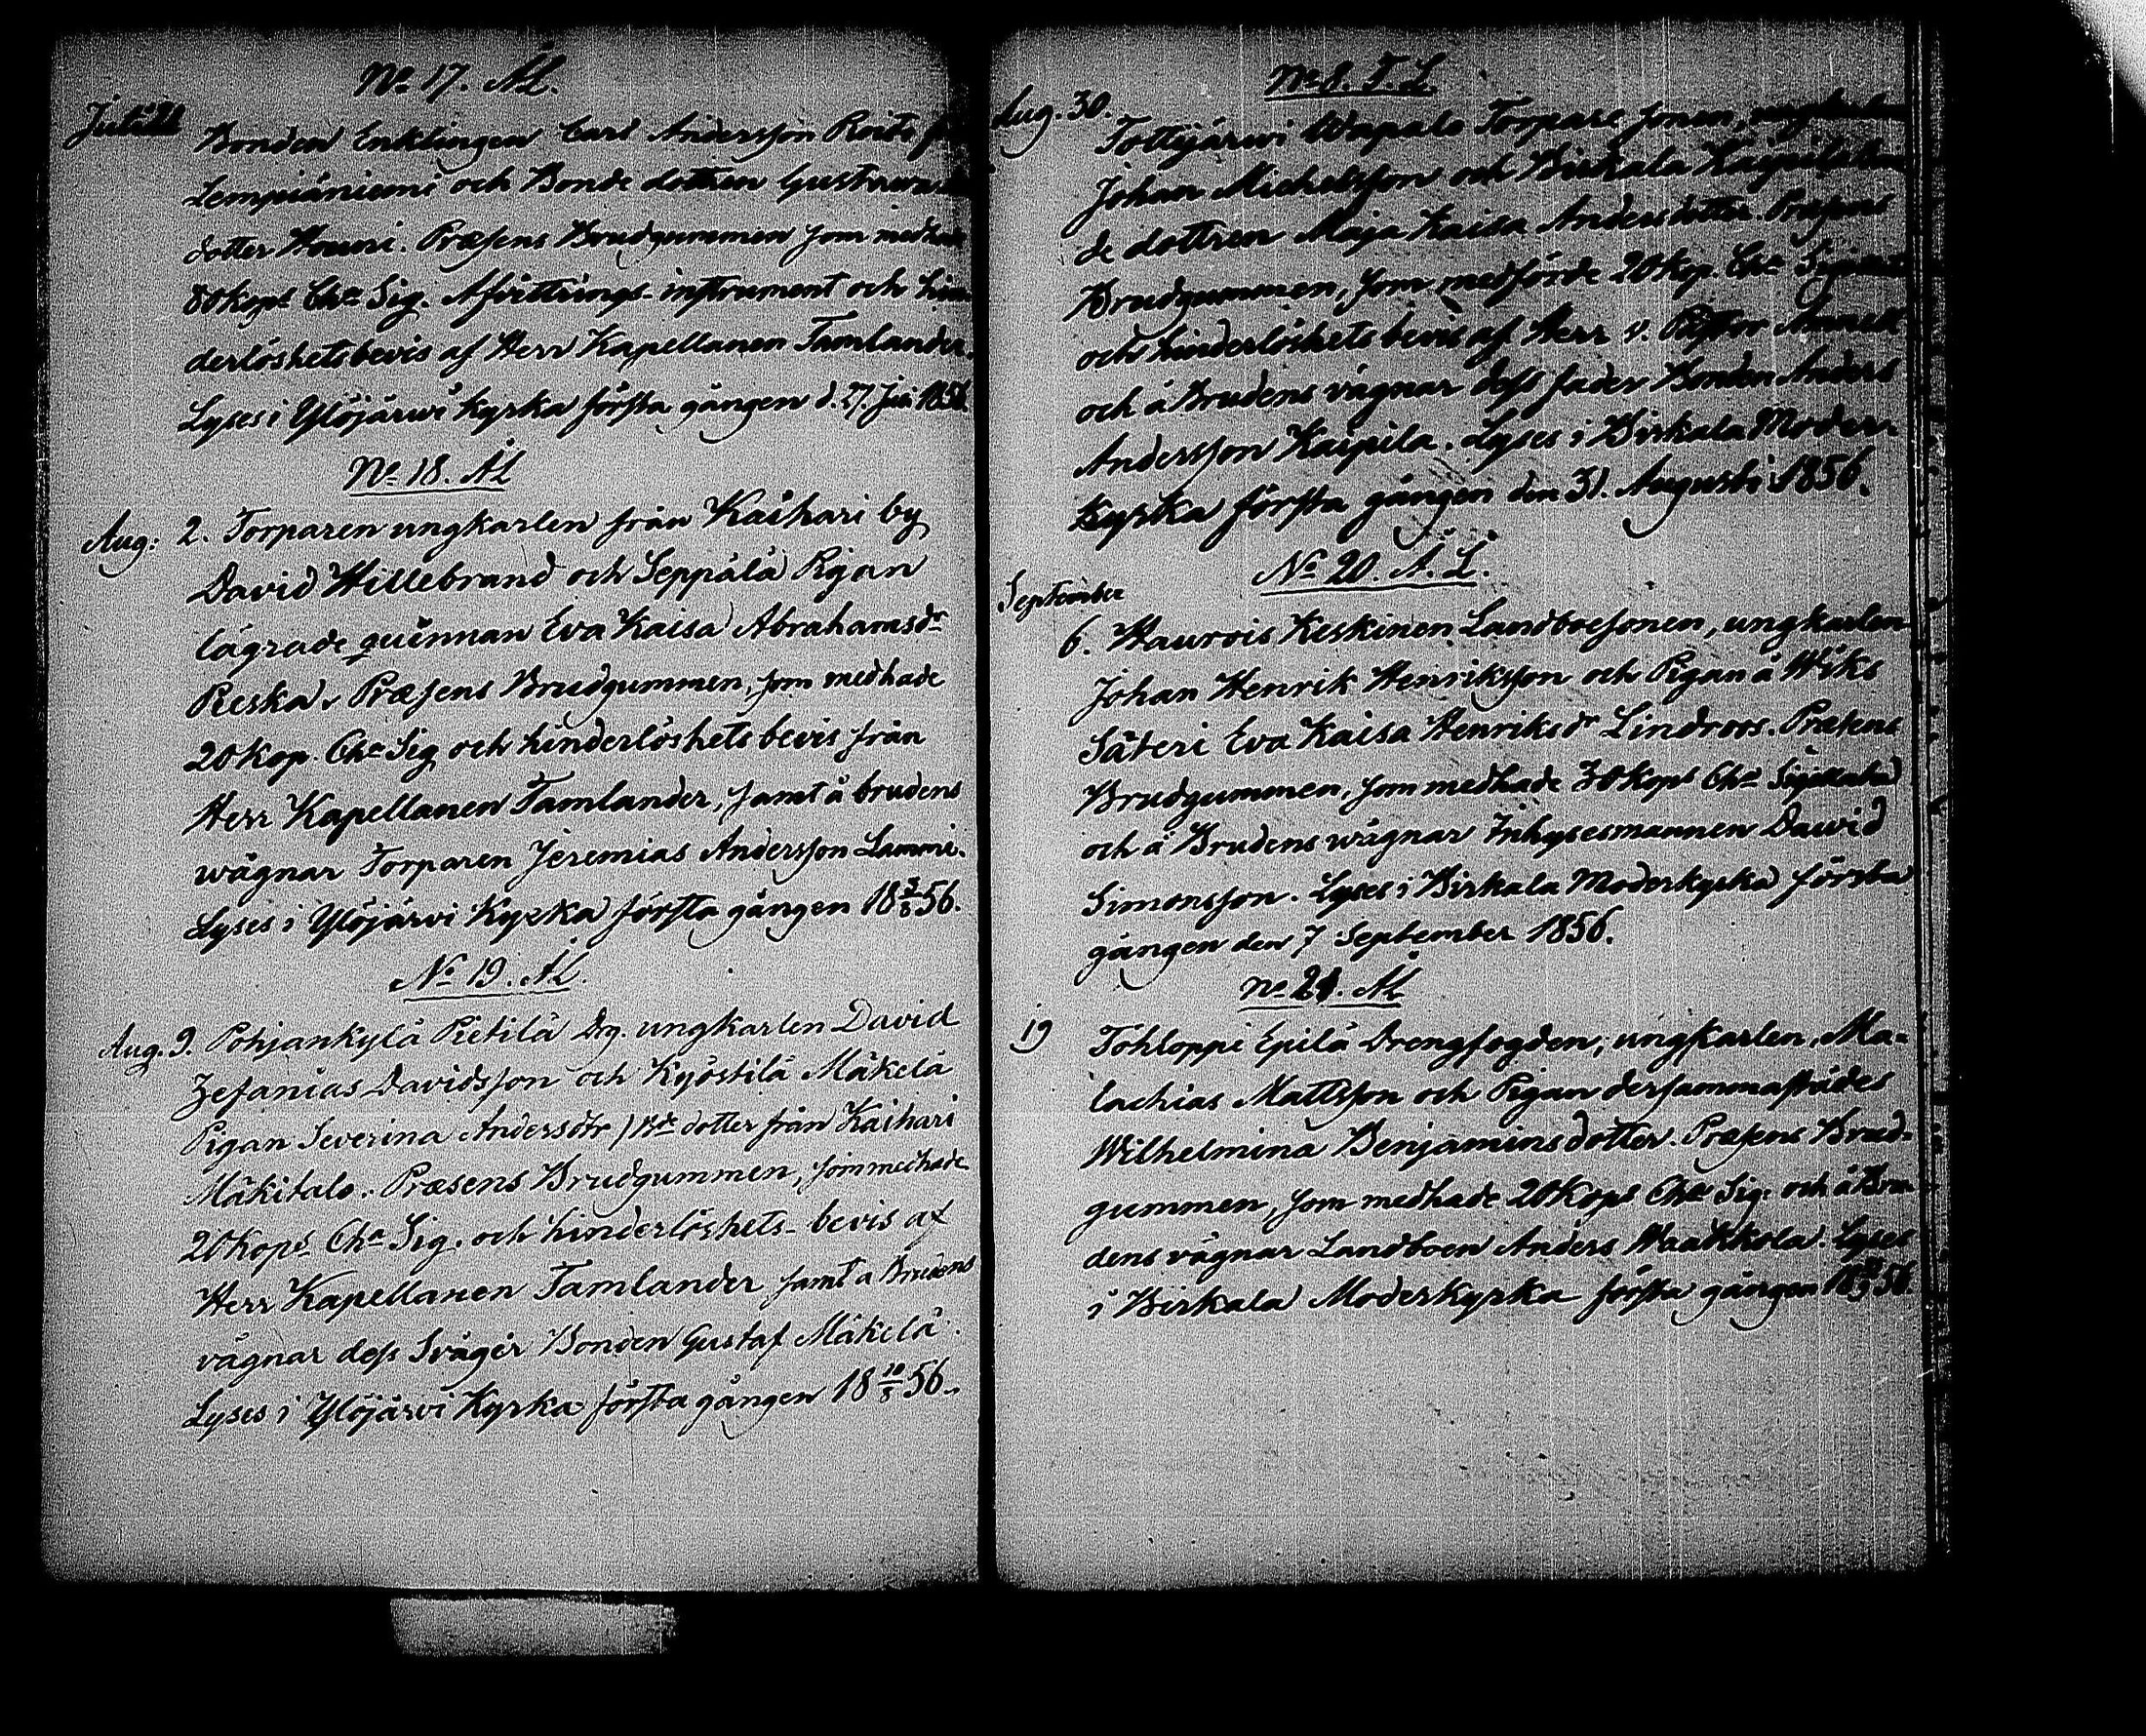 No 17. Al.
Juli
Bonden Enklingen Carl Andersson
Lempiäniemi och Bonde dottren
dotter Præsens Brudgummen som
80 kops Cha Sig. Afvittrings-instrument och hin-
derlöshetsbevis af Herr Kapellanen Tamlander.
Lyses i Ylöjärwi Kyrka första gången d. 27. Juli 1856.
No 18. Al
Aug: 2. Torparen ungkarlen från Kaihari by
David Hillebrand och Seppälä Pigan
lägrade quinnan Eva Kaisa Abrahamsdr
Reska. Præsens Brudgummen, som medhade
20 Kop. Cha Sig och hinderlöshets bevis från
Herr Kapellanen Tamlander, samt å brudens
wägnar Torparen Jeremias Andersson Lammi.
Lyses i Ylöjärvi Kyrka första gången 18 3/8 56.
No 19. Al.
Aug. 9. Pohjankylä Pietilä Dg. ungkarlen David
Zefanias Davidsson och Kyöstilä Mäkelä
Pigan Severina Andersdtr / Bde dotter från Kaihari
Mäkitalo. Præsens Brudgummen, som medhade
20 Kops Cha Sig. och hinderlöshets- bevis af
Herr Kapellanen Tamlander samt a Brudens
vägnar dess Svåger Bonden Gustaf Mäkelä.
Lyses i Ylöjärvi Kyrka första gången 18 10/8 56.
No 8. T. L.
Aug. 30.
Tottijärwi Wapalo Torpare sonen, ungkarlen
Johan Michelsson och Birkala Kaipila Bon-
de dottren Maja Kaisa Anders dotter. Præsens
Brudgummen, som medförde 20 Kop. Cha
och hinderlöshets bevis af Herr v. Pastor
och å Brudens vägnar dess fader Bonden Anders
Andersson Kaipila. Lyses i Birkala Moder-
kyrka första gången den 31. Augusti 1856.
No 20. A. L.
September
6. Haurois Keskinen Landboesonen, ungkarlen
Johan Henrik Henriksson och Pigan å Wiks
Säteri Eva Kaisa Henriksdr Lindroos. Præsens
Brudgummen, som medhade 30 kops Cha
och å Brudens wägnar Inhysesmannen David
Simonsson. Lyses i Birkala Moderkyrka första
gången den 7 September 1856.
No 21. Al
19 Tohloppi Epilä Drengfogden, ungkarlen, Ma-
lachias Mattsson och Pigan dersammastädes
Wilhelmina Benjamins dotter. Præsens Brud-
gummen, som medhade 20 Kops Cha Sig. och å Bru-
dens vägnar Landboen Anders Waakkola. Lyses
i Birkala Moderkyrka första gången